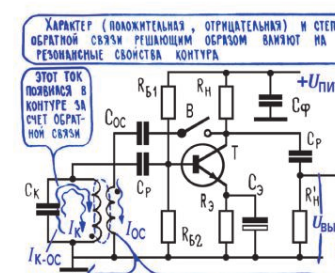 ХАРАКТЕР (ПОЛОЖИТЕЛЬНАЯ, ОТРИЦАТЕЛЬНАЯ) И СТЕП
ОБРАТНОЙ СВЯЗИ РЕШАЮЩИМ ОБРАЗОМ ВЛИЯЮТ НА
РЕЗОНАНСНЫЕ СВОЙСТВА КОНТУРА
ЭТОТ ТОК
ПОЯВИЛСЯ В
КОНТУРЕ ЗА
СЧЕТ ОБРАТ-
НОЙ СВЯЗИ
Rб1
Rн
+Uпи
Cф
Cос
В
Cр
Т
Cр
Cк
Iк
Iос
Iк-ос
Rб2
Rэ
Cэ
R'н
Uвы